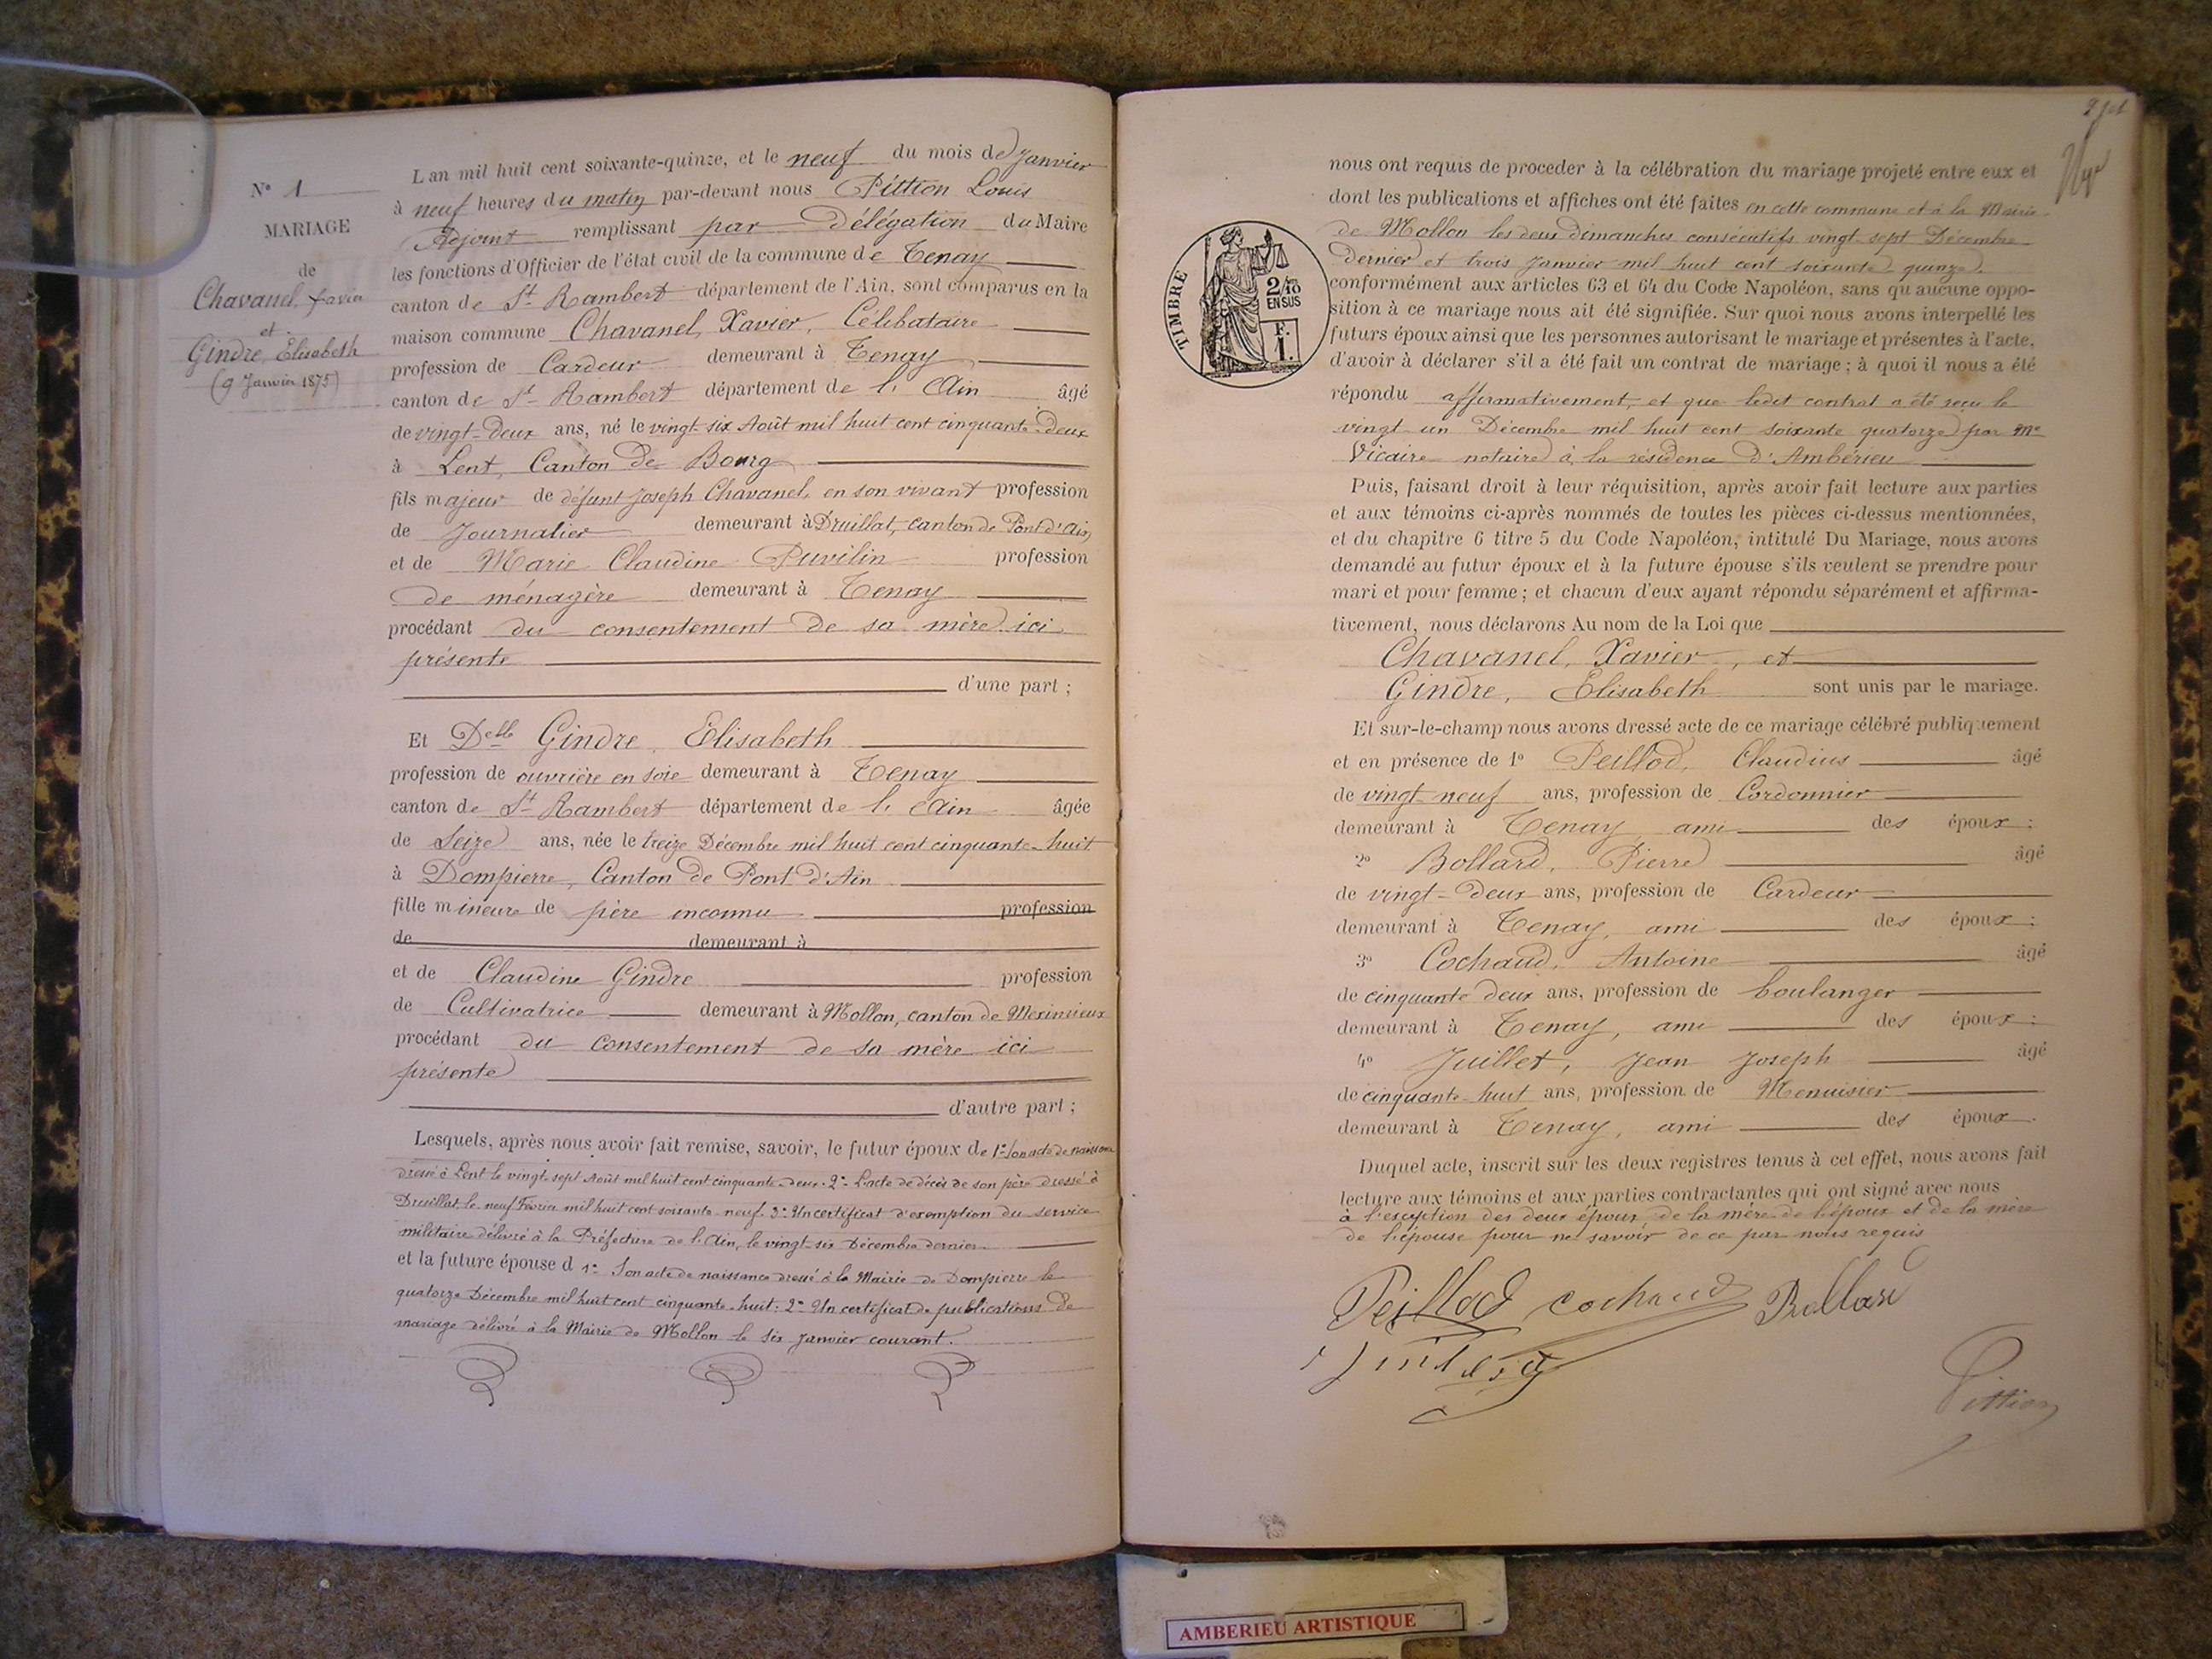 N° 1
MARIAGE
de
Chavanel, Xavier
et
Gindre, Elisabeth
(9 Janvier 1875)
L'an mil huit cent soixante-quinze, et le neuf du mois de Janvier
à neuf heures du matin par-devant nous Pittion Louis
Adjoint remplissant par Délégation du Maire
les fonctions d'Officier de l'état civil de la commune de Tenay
canton de St Rambert département de l'Ain, sont comparus en la
maison commune Chavanel, Xavier, Célibataire
profession de Cardeur demeurant à Tenay
canton de St Rambert département de l'Ain âgé
de vingt-deux ans, né le vingt-six Août mil huit cent cinquante-deux
à Lent, Canton de Bourg
fils majeur de défunt Joseph Chavanel, en son vivant profession
de Journalier demeurant à Druillat, canton de Pont d'Ain,
et de Marie Claudine Puvilin profession
de ménagère demeurant à Tenay
procédant du consentement de sa mère ici
présente
d'une part ;
Et Delle Gindre, Elisabeth
profession de ouvrière en soie demeurant à Tenay
canton de St Rambert département de l'Ain âgée
de Seize ans, née le treize Décembre mil huit cent cinquante-huit
à Dompierre, Canton de Pont d'Ain
fille mineure de père inconnu profession
de demeurant à
et de Claudine Gindre profession
de Cultivatrice demeurant à Mollon, canton de Meximieux
procédant du consentement de sa mère ici
présente
d'autre part ;
Lesquels, après nous avoir fait remise, savoir, le futur époux de 1° Son acte de naissance
dressé à Lent le vingt-sept Août mil huit cent cinquante-deux. 2° L'acte de décès de son père dressé à
Druillat le neuf Février mil huit cent soixante-neuf. 3° Un certificat d'exemption du service
militaire délivré à la Préfecture de l'Ain, le vingt-six Décembre dernier.
et la future épouse d 1° Son acte de naissance dressé à la Mairie de Dompierre le
quatorze Décembre mil huit cent cinquante-huit : 2° Un certificat de publications de
mariage délivré à la Mairie de Mollon le six Janvier courant.
TIMBRE
2/10
EN SUS
F.
1.
nous ont requis de proceder à la célébration du mariage projeté entre eux et
dont les publications et affiches ont été faites en cette commune et à la Mairie
de Mollon les deux Dimanches consécutifs vingt-sept Décembre
Dernier et trois Janvier mil huit cent soixante-quinze.
conformément aux articles 63 et 64 du Code Napoléon, sans qu'aucune oppo-
sition à ce mariage nous ait été signifiée. Sur quoi nous avons interpellé les
futurs époux ainsi que les personnes autorisant le mariage et présentes à l'acte,
d'avoir à déclarer s'il a été fait un contrat de mariage ; à quoi il nous a été
répondu affirmativement, et que ledit contrat a été reçu le
vingt-un Décembre mil huit cent soixante quatorze par Me
Vicaire notaire à la résidence d'Ambérieu
Puis, faisant droit à leur réquisition, après avoir fait lecture aux parties
et aux témoins ci-après nommés de toutes les pièces ci-dessus mentionnées,
et du chapitre 6 titre 5 du Code Napoléon, intitulé Du Mariage, nous avons
demandé au futur époux et à la future épouse s'ils veulent se prendre pour
mari et pour femme ; et chacun d'eux ayant répondu séparément et affirma-
tivement, nous déclarons Au nom de la Loi que
Chavanel, Xavier, et
Gindre, Elisabeth sont unis par le mariage.
Et sur-le-champ nous avons dressé acte de ce mariage célébré publiquement
et en présence de 1° Peillod, Claudius âgé
de vingt-neuf ans, profession de Cordonnier
demeurant à Tenay, ami des époux :
2° Bollard, Pierre âgé
de vingt-deux ans, profession de Cardeur
demeurant à Tenay, ami des époux :
3° Cochaud, Antoine âgé
de cinquante deux ans, profession de boulanger
demeurant à Tenay, ami des époux :
4° Juillet, Jean Joseph âgé
de cinquante-huit ans, profession de Menuisier
demeurant à Tenay, ami des époux.
Duquel acte, inscrit sur les deux registres tenus à cet effet, nous avons fait
lecture aux témoins et aux parties contractantes qui ont signé avec nous
à l'exception des deux époux, de la mère de l'époux et de la mère
de l'épouse pour ne savoir de ce par nous requis
Peillod cochaud Bollard
Pittion
AMBERIEU ARTISTIQUE